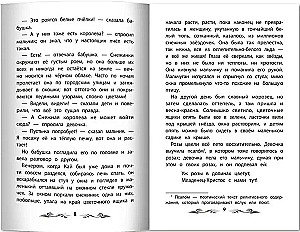 — Это роятся белые пчёлки! — сказала
бабушка.
— А у них тоже есть королева? — спросил
мальчик; он знал, что у настоящих пчёл есть
такая.
— Есть! — отвечала бабушка. — Снежинки
окружают её густым роем, но она больше их
всех и никогда не остаётся на земле — вечно
носится на чёрном облаке. Часто по ночам
пролетает она по городским улицам и загля-
дывает в окошки; вот оттого-то они и покры-
ваются ледяными узорами, словно цветами!
— Видели, видели! — сказали дети и пове-
рили, что всё это сущая правда.
— А Снежная королева не может войти
сюда? — спросила девочка.
— Пусть-ка попробует! — сказал мальчик. —
Я посажу её на тёплую печку, вот она и рас-
тает!
Но бабушка погладила его по голове и за-
вела разговор о другом.
Вечером, когда Кай был уже дома и почти
совсем разделся, собираясь лечь спать, он
вскарабкался на стул у окна и поглядел в ма-
ленький оттаявший на оконном стекле кружо-
чек. За окном порхали снежинки; одна из них,
побольше, упала на край цветочного ящика и
8
начала расти, расти, пока наконец не превра-
тилась в женщину, укутанную в тончайший бе-
лый тюль, сотканный, казалось, из миллионов
снежных звёздочек. Она была так прелестна,
так нежна, вся из ослепительно-белого льда —
и всё же живая! Глаза её сверкали, как звёзды,
но в них не было ни теплоты, ни кротости.
Она кивнула мальчику и поманила его рукой.
Мальчуган испугался и спрыгнул со стула; мимо
окна промелькнуло что-то похожее на большую
птицу.
На другой день был славный морозец, но
затем сделалась оттепель, а там пришла и
весна-красна. Солнышко светило, цветочные
ящики опять были все в зелени, ласточки вили
под крышей гнёзда, окна растворили, и детям
опять можно было сидеть в своём маленьком
садике на крыше.
Розы цвели всё лето восхитительно. Девочка
выучила псалом¹, в котором тоже говорилось о
розах; девочка пела его мальчику, думая при
этом о своих розах, и он подпевал ей:
Уж розы в долинах цветут,
Младенец-Христос с нами тут!
¹ Псалом — поэтический текст религиозного содер-
жания, который прославляет или возвеличивает бога.
9